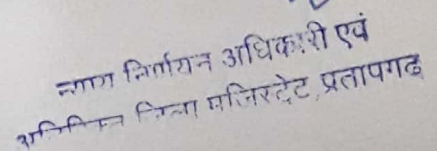 न्याय निर्णायन अधिकारी एवं
अतिरिक्त जिला मजिस्ट्रेट, प्रतापगढ़